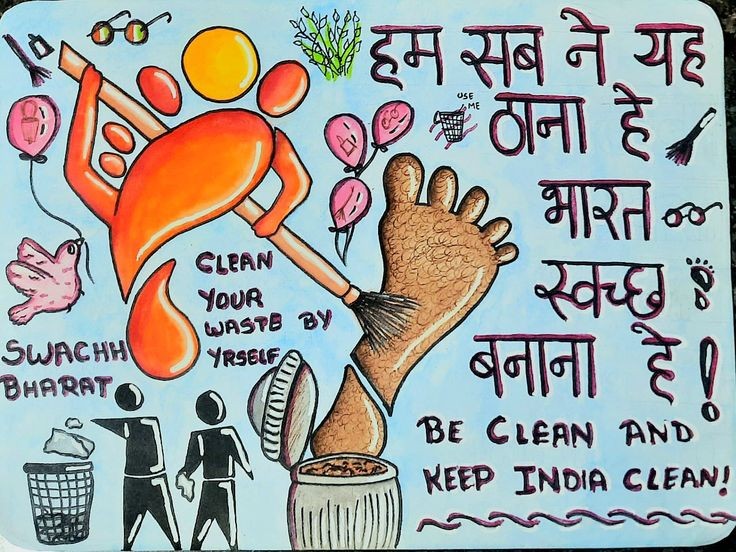 हम सब ने यह
ठाना हे
भारत
स्वच्छ
बनाना हे !
USE
ME
CLEAN
YOUR
WASTE BY
YRSELF
SWACHH
BHARAT
BE CLEAN AND
KEEP INDIA CLEAN!